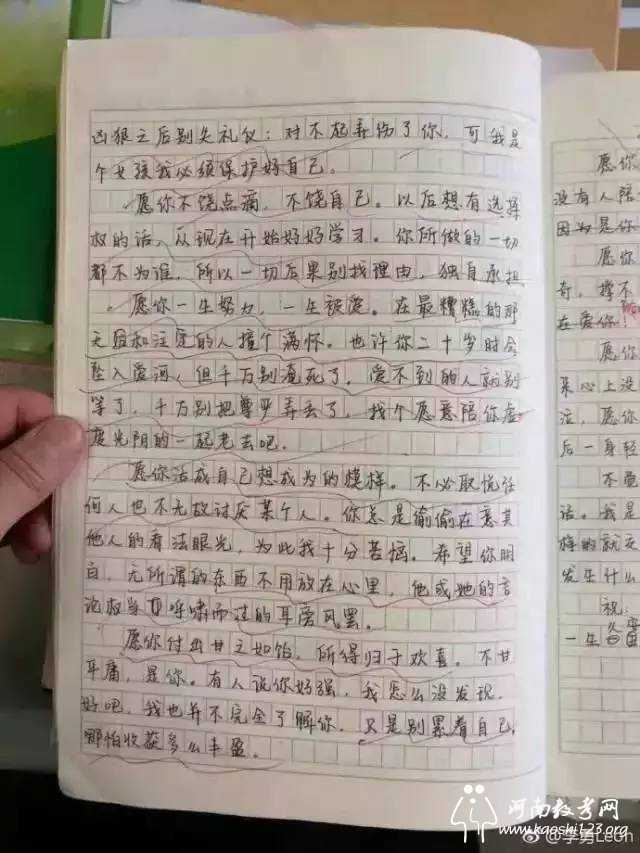 凶狠之后别失礼仪：对不起弄伤了你，可我是
个女孩我必须保护好自己。
愿你不饶点病，不饶自己。以后想有选择
权的话，从现在开始好好学习。你所做的一切
都不为谁，所以一切后果别找理由，独自承担
愿你一生努力，一生被爱。在最糟糕的那
天跟和注定的人撞个满怀。也许你二十岁时会
坠入爱河，但千万别淹死了，爱不到的人就别
等了，千万别把尊严弄丢了，找个愿意陪你虚
度光阴的一起老去吧。
愿你活成自己想成为的模样。不必取悦任
何人也不无故讨厌某个人。你总是偷偷在意其
他人的看法眼光，为此我十分苦恼。希望你明
白，无所谓的东西不用放在心里，他或她的言
论权当呼啸而过的耳旁风罢。
愿你付出甘之如饴，所得归于欢喜。不甘
平庸，是你。有人说你好强，我怎么没发现，
好吧，我也并不完全了解你，只是别累着自己，
哪怕收获多么丰盈。
愿你
没有人陪
因为是你
愿你
奇，撑不
在爱你
愿你
来心上没
泣，愿你
后一身轻
不觉
话。我是
的就天
发生什么
祝：
一生
河南教考网
www.kaoshi123.org
@李勇Leon